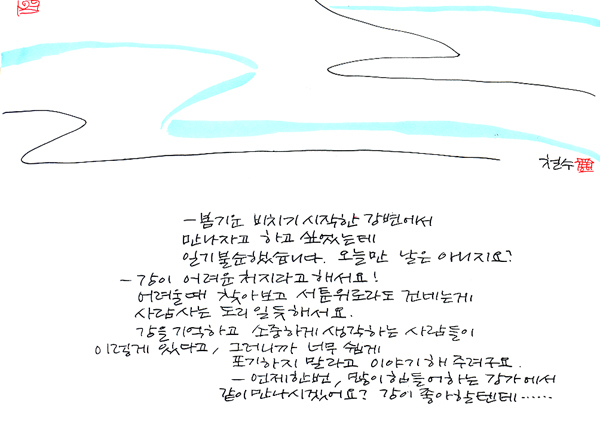 철수
-봄기운 비치기 시작한 강변에서
만나자고 하고 싶었는데
일기불순했습니다. 오늘만 날은 아니지요?
-강이 어려운 처지라고 해서요!
어려울때 찾아보고 서툰위로라도 건네는게
사람사는 도리일듯해서요.
강을 기억하고 소중하게 생각하는 사람들이
이렇게 있다고, 그러니까 너무 쉽게
포기하지 말라고 이야기해 주려구요.
-언제한번, 많이 힘들어하는 강가에서
같이 만나시겠어요? 강이 좋아할텐데……